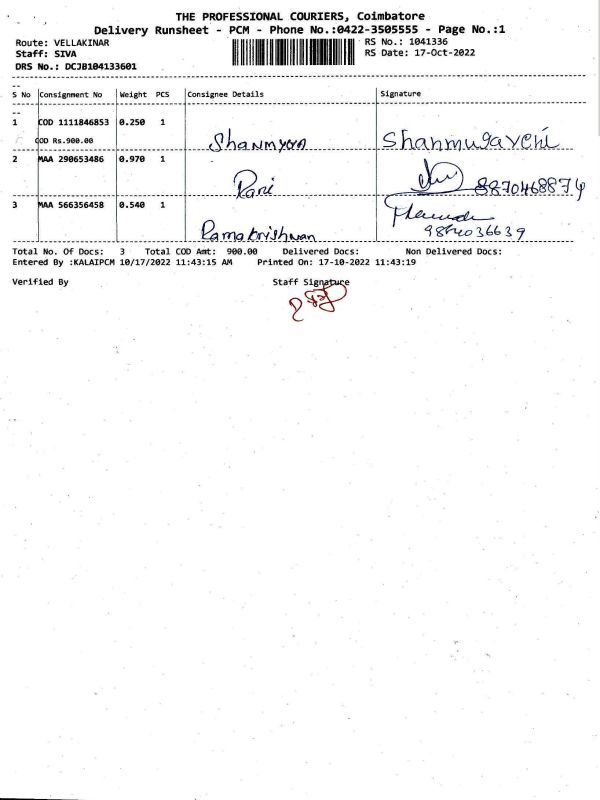 THE PROFESSIONAL COURIERS, Coimbatore
Delivery Runsheet - PCM - Phone No.:0422-3505555 - Page No.:1
Route: VELLAKINAR RS No.: 1041336
Staff: SIVA RS Date: 17-Oct-2022
DRS No.: DCJB104133601
S No Consignment No Weight PCS Consignee Details Signature
1 COD 1111846853 0.250 1
COD Rs.900.00
2 MAA 290653486 0.970 1
Rani 8870468874
3 MAA 566356458 0.540 1
Ramakrishnan
Total No. Of Docs: 3 Total COD Amt: 900.00 Delivered Docs: Non Delivered Docs:
Entered By :KALAIPCM 10/17/2022 11:43:15 AM Printed On: 17-10-2022 11:43:19
Verified By Staff Signature